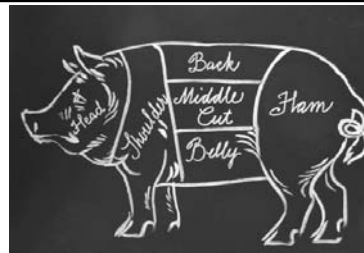 Head
Shoulder
Back
Middle
Cut
Belly
Ham